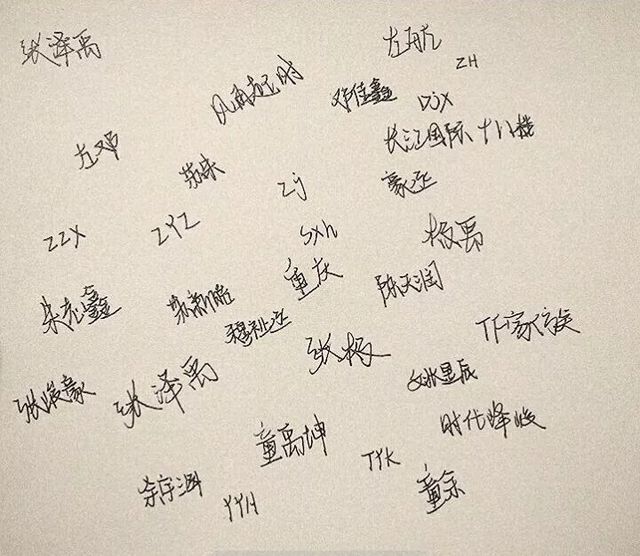 张泽禹
左航
ZH
风再起时
邓佳鑫 DJX
长江国际十八楼
左邓
苏朱
ZJ
豪丞
ZZX
ZYZ
SXH
极禹
重庆
陈天润
朱志鑫
苏新皓
穆祉丞
TF家族
张极
张峻豪
张泽禹
姚昱辰
时代峰峻
童禹坤
TYK
余宇涵
YYH
童余